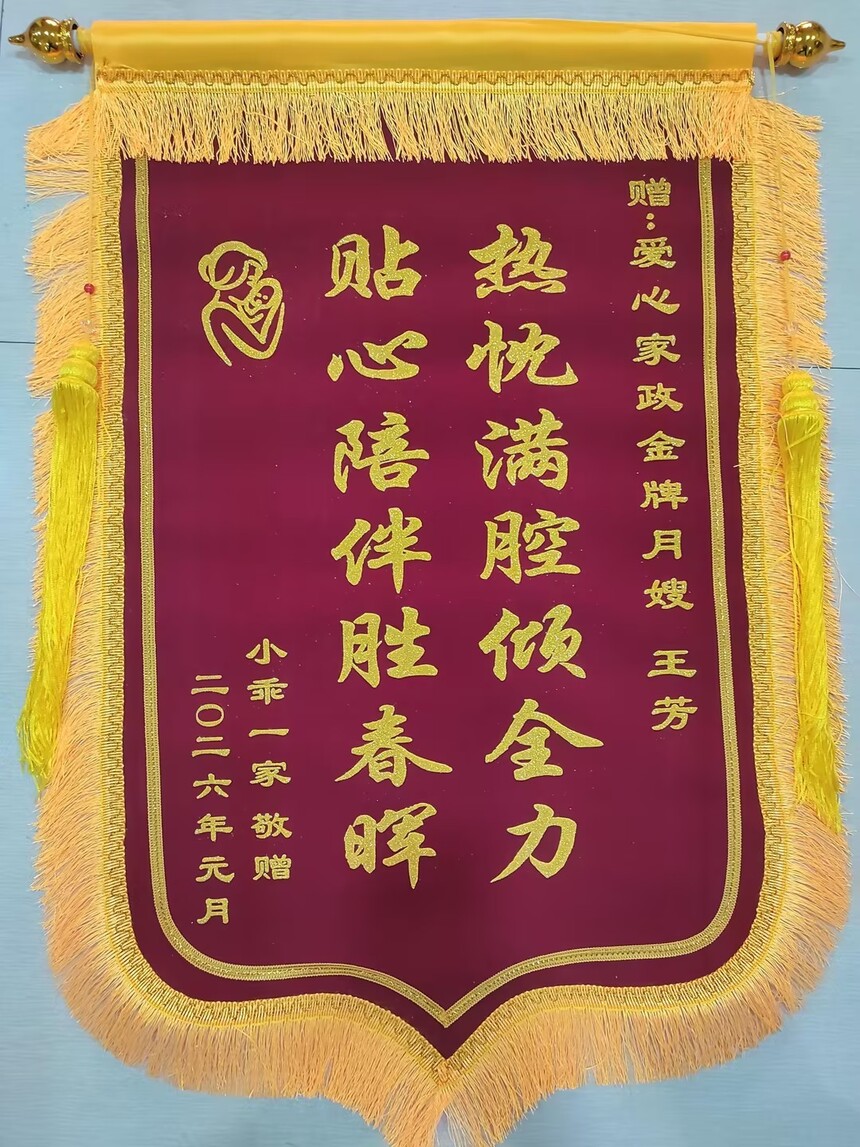 赠:爱心家政金牌月嫂 王芳
热忱满腔倾全力
贴心陪伴胜春晖
小乖一家敬赠
二〇二六年元月